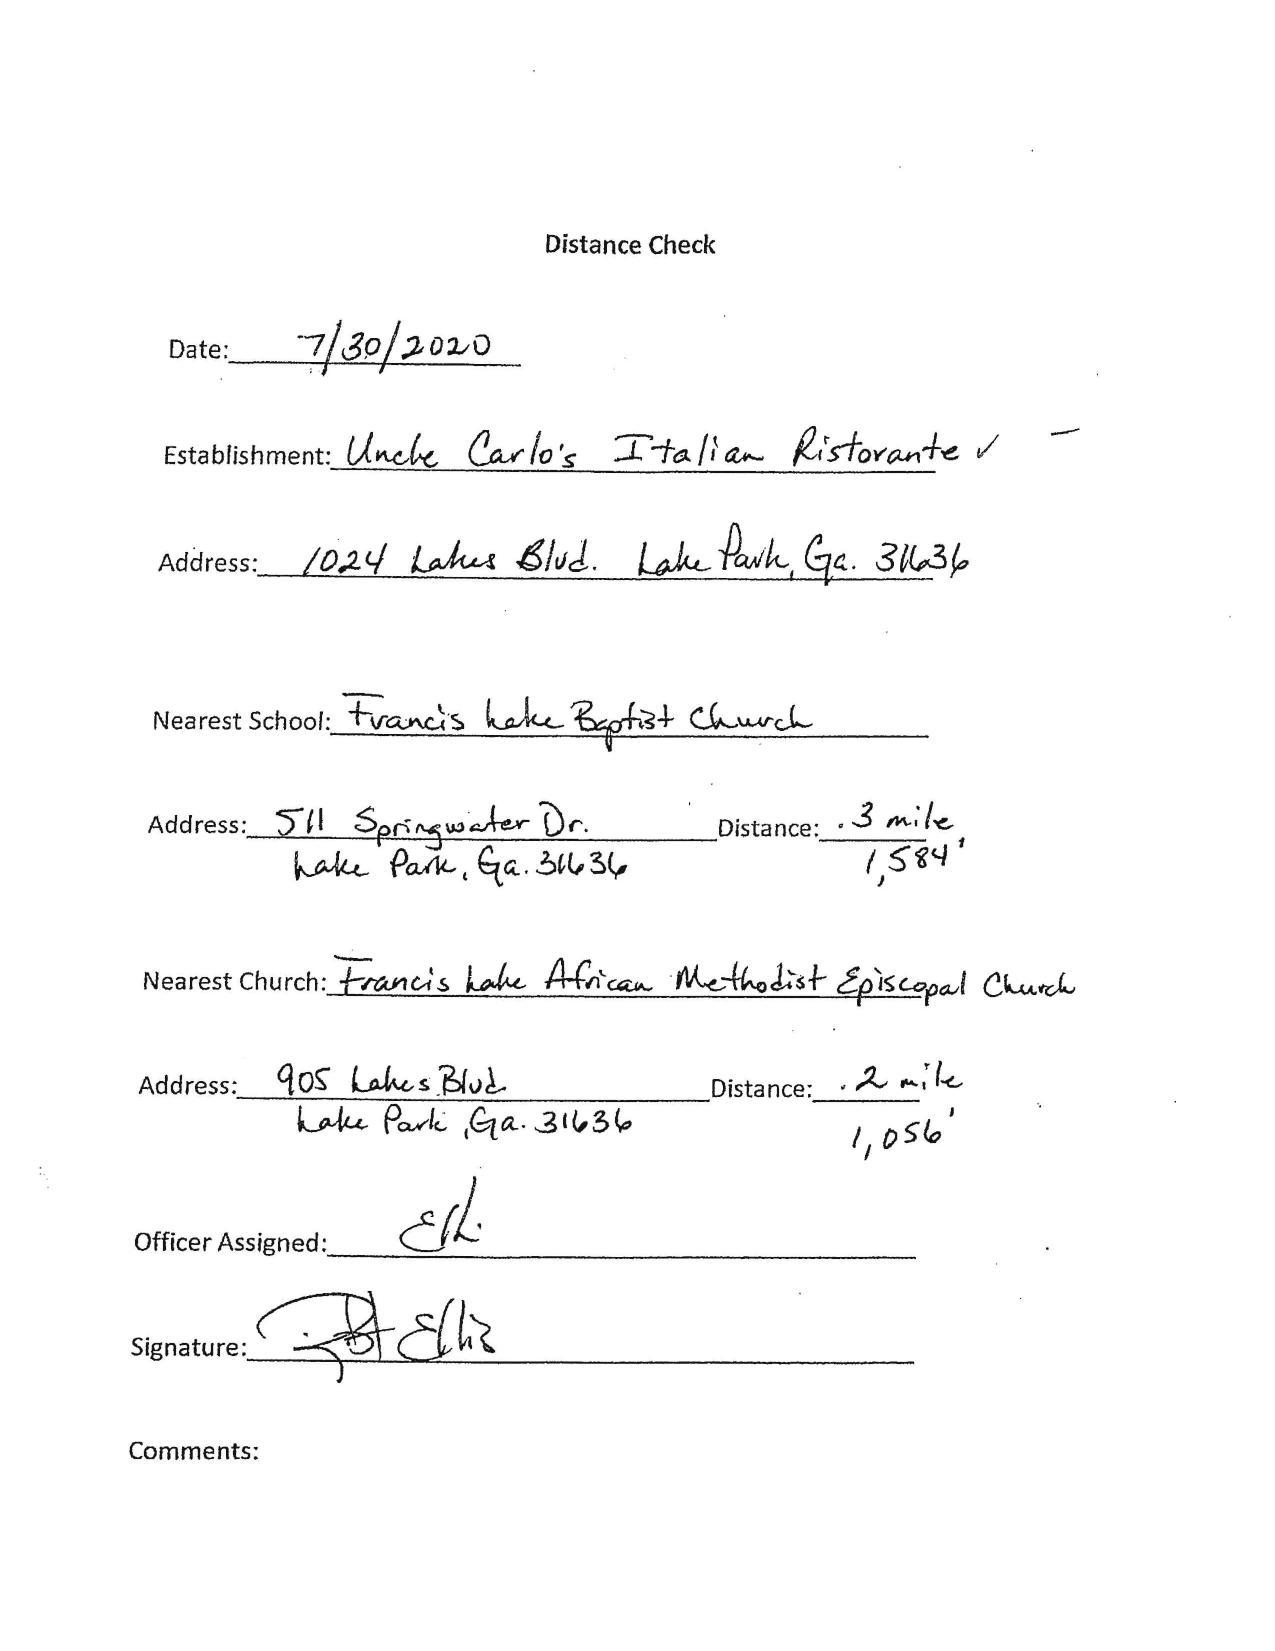 Distance Check
Date: 7/30/2020
Establishment: Uncle Carlo's Italian Ristorante ✓ –
Address: 1024 Lakes Blvd. Lake Park, Ga. 31636
Nearest School: Francis Lake Baptist Church
Address: 511 Springwater Dr. Distance: .3 mile
Lake Park, Ga. 31636 1,584'
Nearest Church: Francis Lake African Methodist Episcopal Church
Address: 905 Lakes Blvd Distance: .2 mile
Lake Park, Ga. 31636 1,056'
Officer Assigned:
Signature: Ellis
Comments: